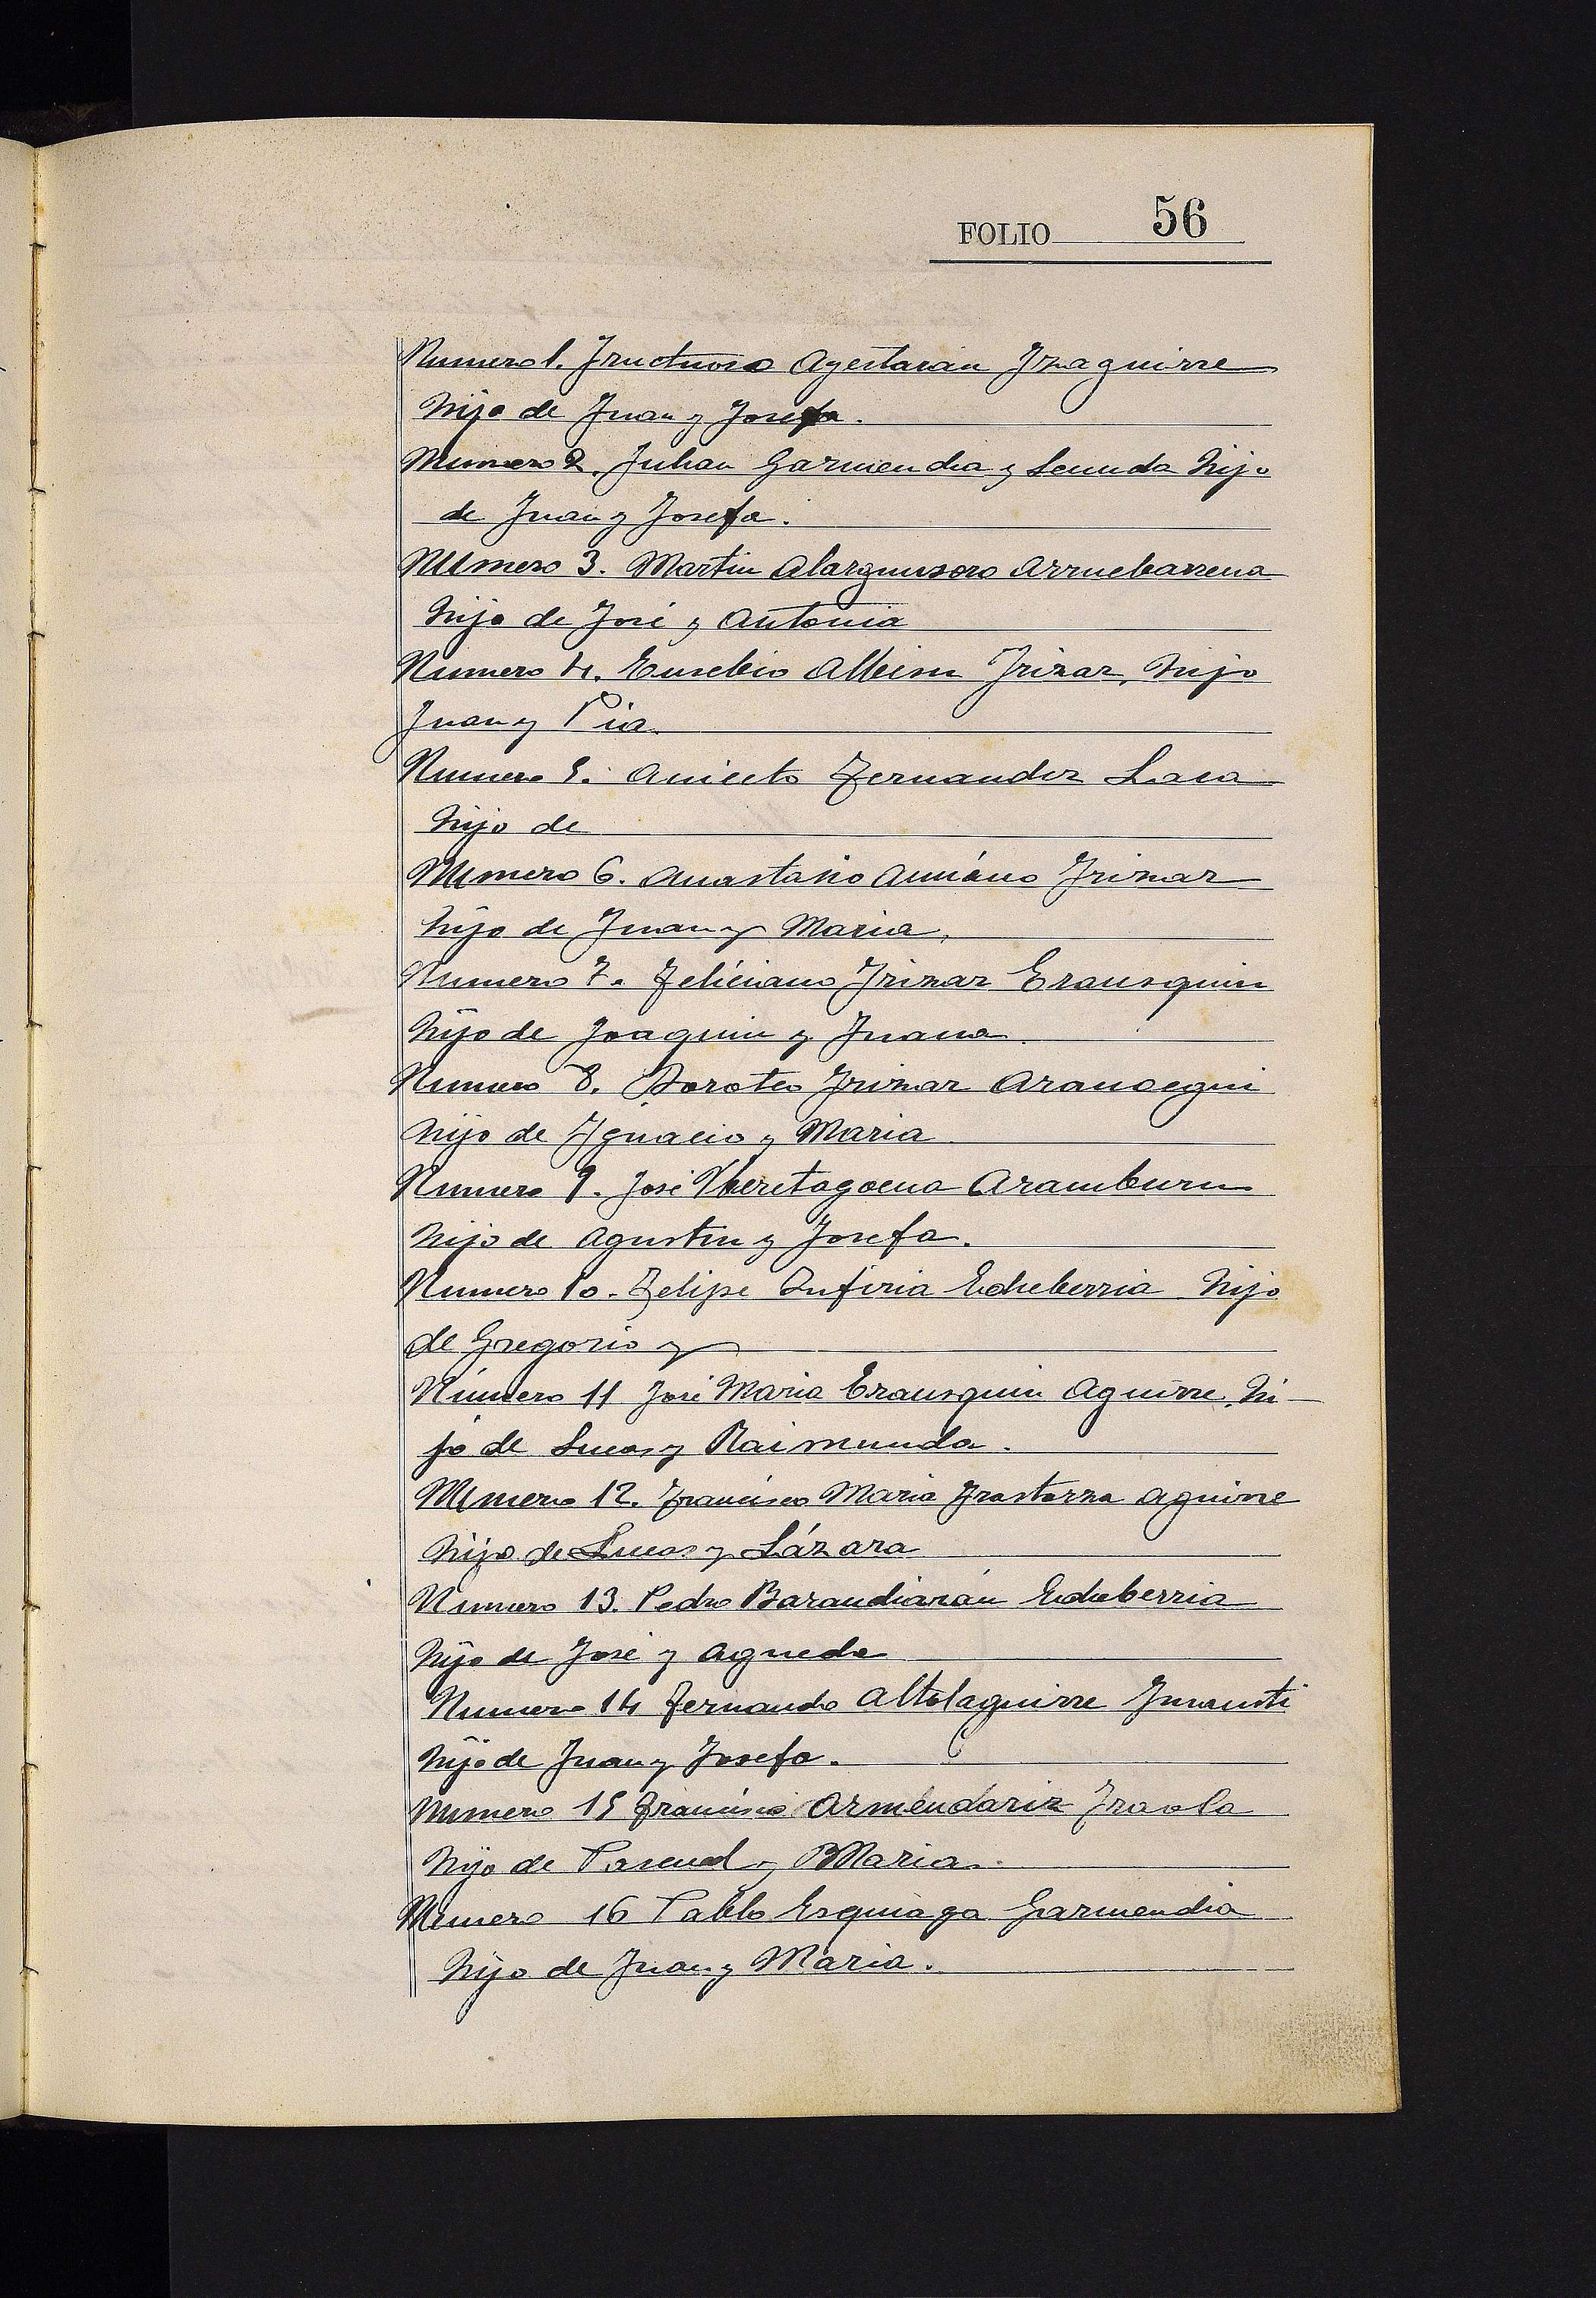 FOLIO 56
Numero 1. Fructuoso Agestarán Yzaguirre
hijo de Juan y Josefa.
Numero 2. Julian Garmendia y Senuda hijo
de Juan y Josefa.
Numero 3. Martin Alarguusoro Arruebarrena
hijo de José y Antonia
Numero 4. Eusebio Albisu Irizar, hijo
Juan y Pia.
Numero 5. Aniceto Fernandez Laca
hijo de
Numero 6. Anastasio Amiano Irizar
hijo de Juan y Maria.
Numero 7. Feliciano Irizar Erausquin
hijo de Joaquin y Juana.
Numero 8. Doroteo Irizar Aranoegui
hijo de Ignacio y Maria
Numero 9. José Yberetagoena Aramburu
hijo de Agustin y Josefa.
Numero 10. Felipe Echeberria hijo
de Gregorio y
Número 11 José Maria Erausquin Aguirre, hi-
jo de Lucas y Raimunda.
Numero 12. Francisco Maria Irastorza Aguirre
hijo de Lucas y Lázara
Numero 13. Pedro Barandiarán Echeberria
hijo de José y Agueda
Numero 14 Fernando Altolaguirre Insausti
hijo de Juan y Josefa.
Numero 15 Francisco Armendariz Iraola
hijo de Pascual y Maria.
Numero 16 Pablo Esquiaga Garmendia
hijo de Juan y Maria.